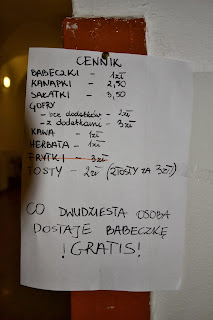 CENNIK
BABECZKI - 1zł
KANAPKI - 2,50
SAŁATKI - 3,50
GOFRY
- bez dodatków - 2zł
- z dodatkami - 3zł
KAWA - 1zł
HERBATA - 1zł
FRYTKI - 3zł
TOSTY - 2zł (2TOSTY ZA 3zł)
CO DWUDZIESTA OSOBA
DOSTAJE BABECZKĘ
! GRATIS!